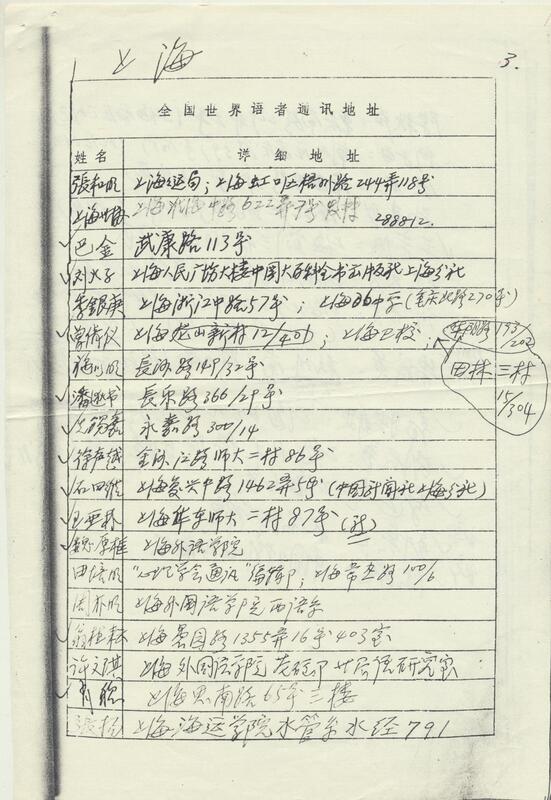 上海
3.
全国世界语者通讯地址
姓名 详细地址
張和明 上海海运局；上海虹口区梧州路244弄118号
上海 上海淮海中路622弄7号 288812.
✓巴金 武康路113号
✓刘火子 上海人民广场大楼中国大百科全书出版社上海分社
李银庚 上海浙江中路57号；上海86中学(重庆北路270号)
✓曾倩仪 上海 山新村12/401；上海卫校； 193/202
田林三村 15/304
長 路149/32号
✓潘 長乐路366/29号
✓ 永嘉路300/14
✓徐声越 金沙江路师大二村86号
✓石田 上海复兴中路1462弄5号(中国新闻社上海分社)
✓王亚林 上海华东师大二村87号
✓魏原枢 上海外语学院
田 明 "心心学会通讯"编辑部；上海 路100/6
周 明 上海外国语学院西语系
✓ 上海愚园路1355弄16号403室
许文琪 上海外国语学院 世界语研究室
✓肖聪 上海思南路65号三楼
張杨 上海海运学院水管系水经791